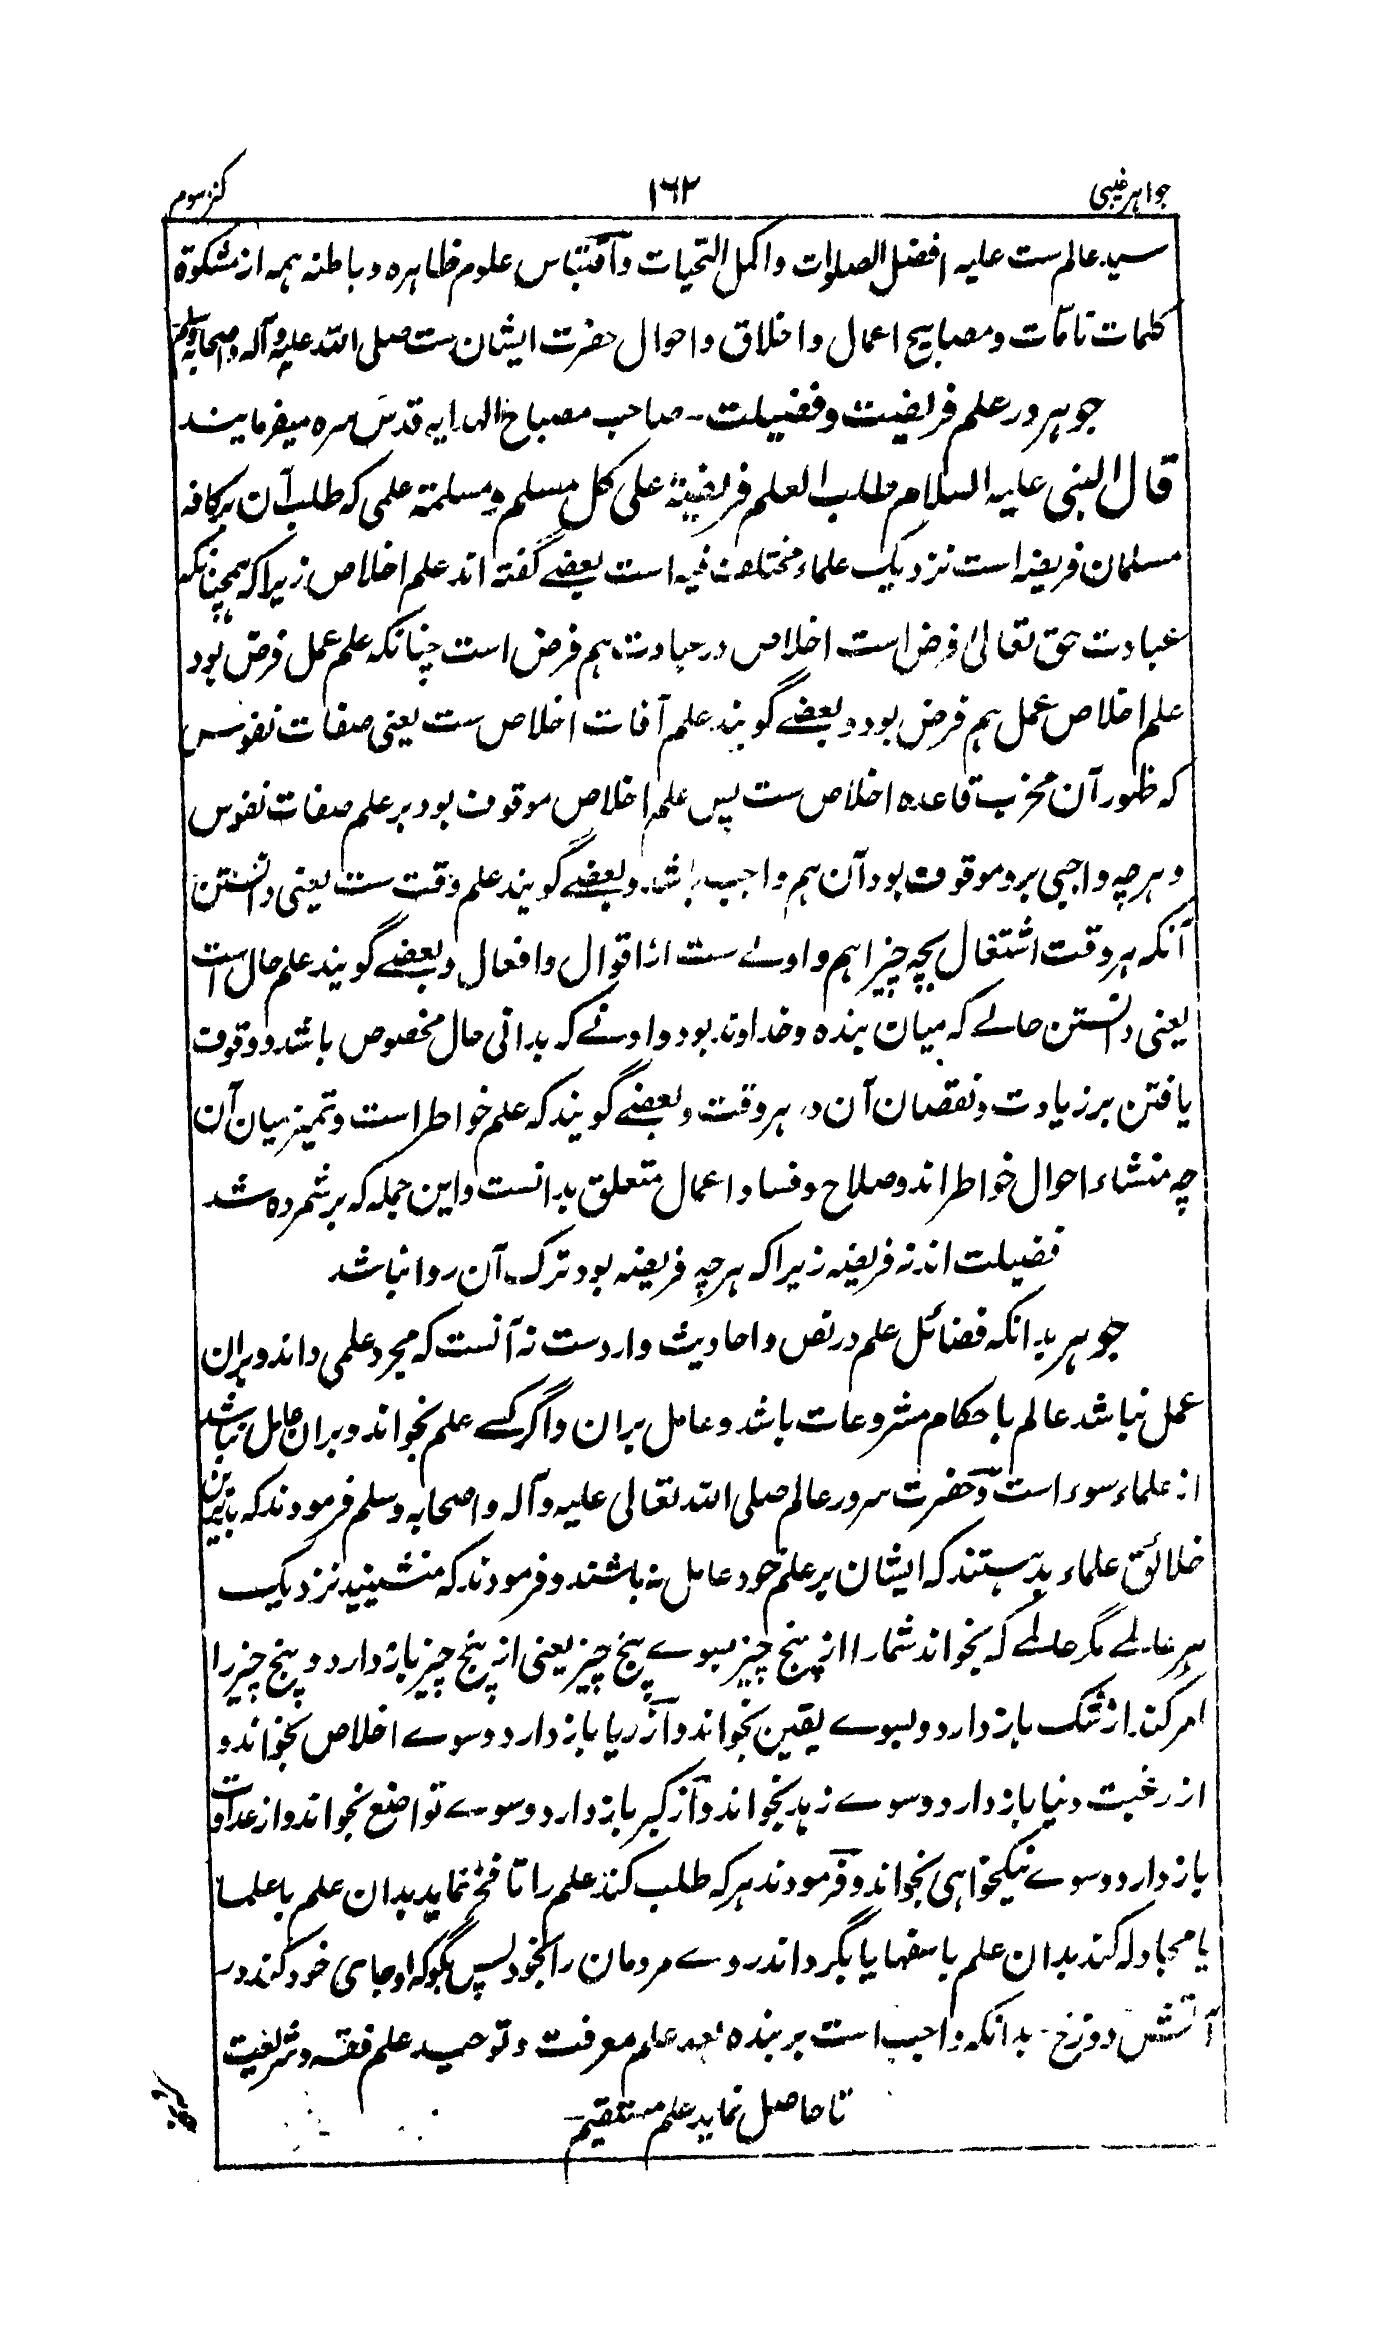 جواہر غیبی ۱۶۲ کنز سوم
سید عالم ست علیہ افضل الصلوات واکمل التحیات واقتباس علوم ظاہرہ وباطنہ ہمہ از مشکوۃ
کلمات تامات ومصابیح اعمال واخلاق واحوال حضرت ایشان ست صلی اللہ علیہ وآلہ واصحابہ وسلم
جوہر در علم فریضیت وفضیلت ۔ صاحب مصباح الہدایہ قدس سرہ میفرمایند
قال النبی علیہ السلام طلب العلم فریضۃ علی کل مسلم ومسلمۃ علمی کہ طلب آن بر کافہ
مسلمان فریضہ است نزدیک علماء مختلف فیہ است بعضے گفتہ اند علم اخلاص زیراکہ ہمچنانکہ
عبادت حق تعالیٰ فرض است اخلاص در عبادت ہم فرض است چنانکہ علم عمل فرض بود
علم اخلاص عمل ہم فرض بود وبعضے گویند علم آفات اخلاص ست یعنی صفات نفوس
کہ ظہور آن مخرب قاعدہ اخلاص ست پس علم اخلاص موقوف بود بر علم صفات نفوس
وہرچہ واجبی برو موقوف بود آن ہم واجب باشد وبعضے گویند علم وقت ست یعنی دانستن
آنکہ ہر وقت اشتغال بچہ چیز اہم واولے ست از اقوال وافعال وبعضے گویند علم حال است
یعنی دانستن حالے کہ میان بندہ وخداوند بود وادبے کہ بدانی حال مخصوص باشد ووقوف
یافتن بر زیادت ونقصان آن در ہر وقت وبعضے گویند کہ علم خواطر است وتمیز میان آن
چہ منشاء احوال خواطر اند وصلاح وفساد اعمال متعلق بدانست واین جملہ کہ بر شمردہ شد
فضیلت اند نہ فریضہ زیراکہ ہرچہ فریضہ بود ترک آن روا نباشد
جوہر بدانکہ فضائل علم در نص واحادیث واردست نہ آنست کہ مجرد علمی داند وبران
عمل نباشد عالم باحکام مشروعات باشد وعامل بران واگر کسے علم بخواند وبران عامل نباشد
از علماء سوء است وحضرت سرور عالم صلی اللہ تعالی علیہ وآلہ واصحابہ وسلم فرمودند کہ بدترین
خلائق علماء بد ہستند کہ ایشان بر علم خود عامل نہ باشند وفرمودند کہ منشینید نزدیک
ہر عالمے مگر عالمے کہ بخواند شمارا از پنج چیز بسوے پنج چیز یعنی از پنج چیز باز دارد وپنج چیز را
امر کند از شک باز دارد وبسوے یقین بخواند واز ریا باز دارد وسوے اخلاص بخواند و
از رغبت دنیا باز دارد وسوے زہد بخواند واز کبر باز دارد وسوے تواضع بخواند واز عداوت
باز دارد وسوے نیکخواہی بخواند وفرمودند ہر کہ طلب کند علم را تا فخر نماید بدان علم با علما
یا مجادلہ کند بدان علم با سفہا یا بگرداند روے مردمان را بخود پس بگو کہ او جای خود کند در
آتش دوزخ ۔ بدانکہ واجب است بر بندہ بعد علم معرفت وتوحید علم فقہ وشریعت
تا حاصل نماید علم مستقیم ۔